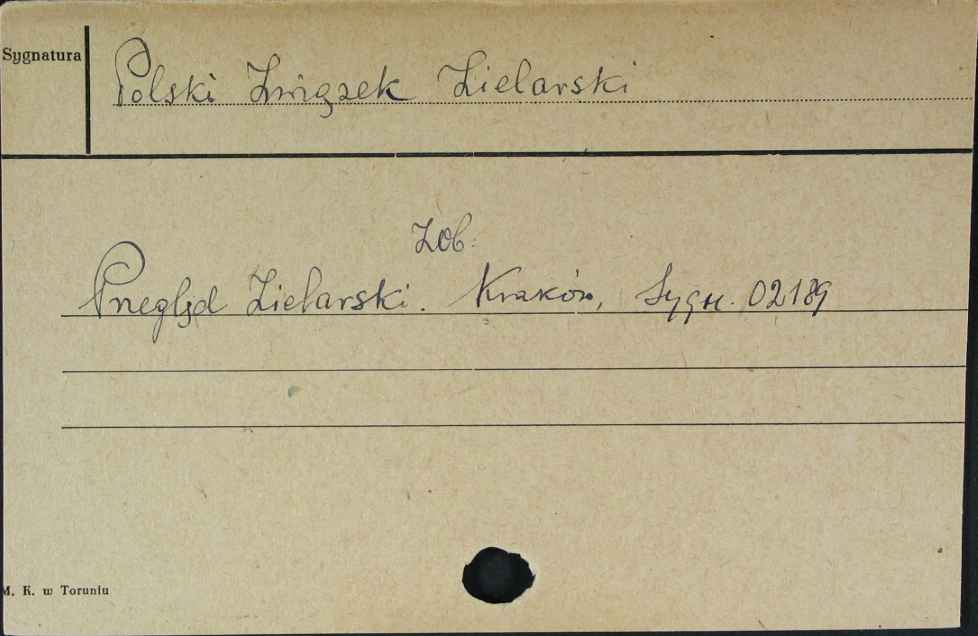 Sygnatura
Polski Związek Zielarski
Zob:
Przegląd Zielarski. Kraków, Sygn. 02189
M. K. w Toruniu